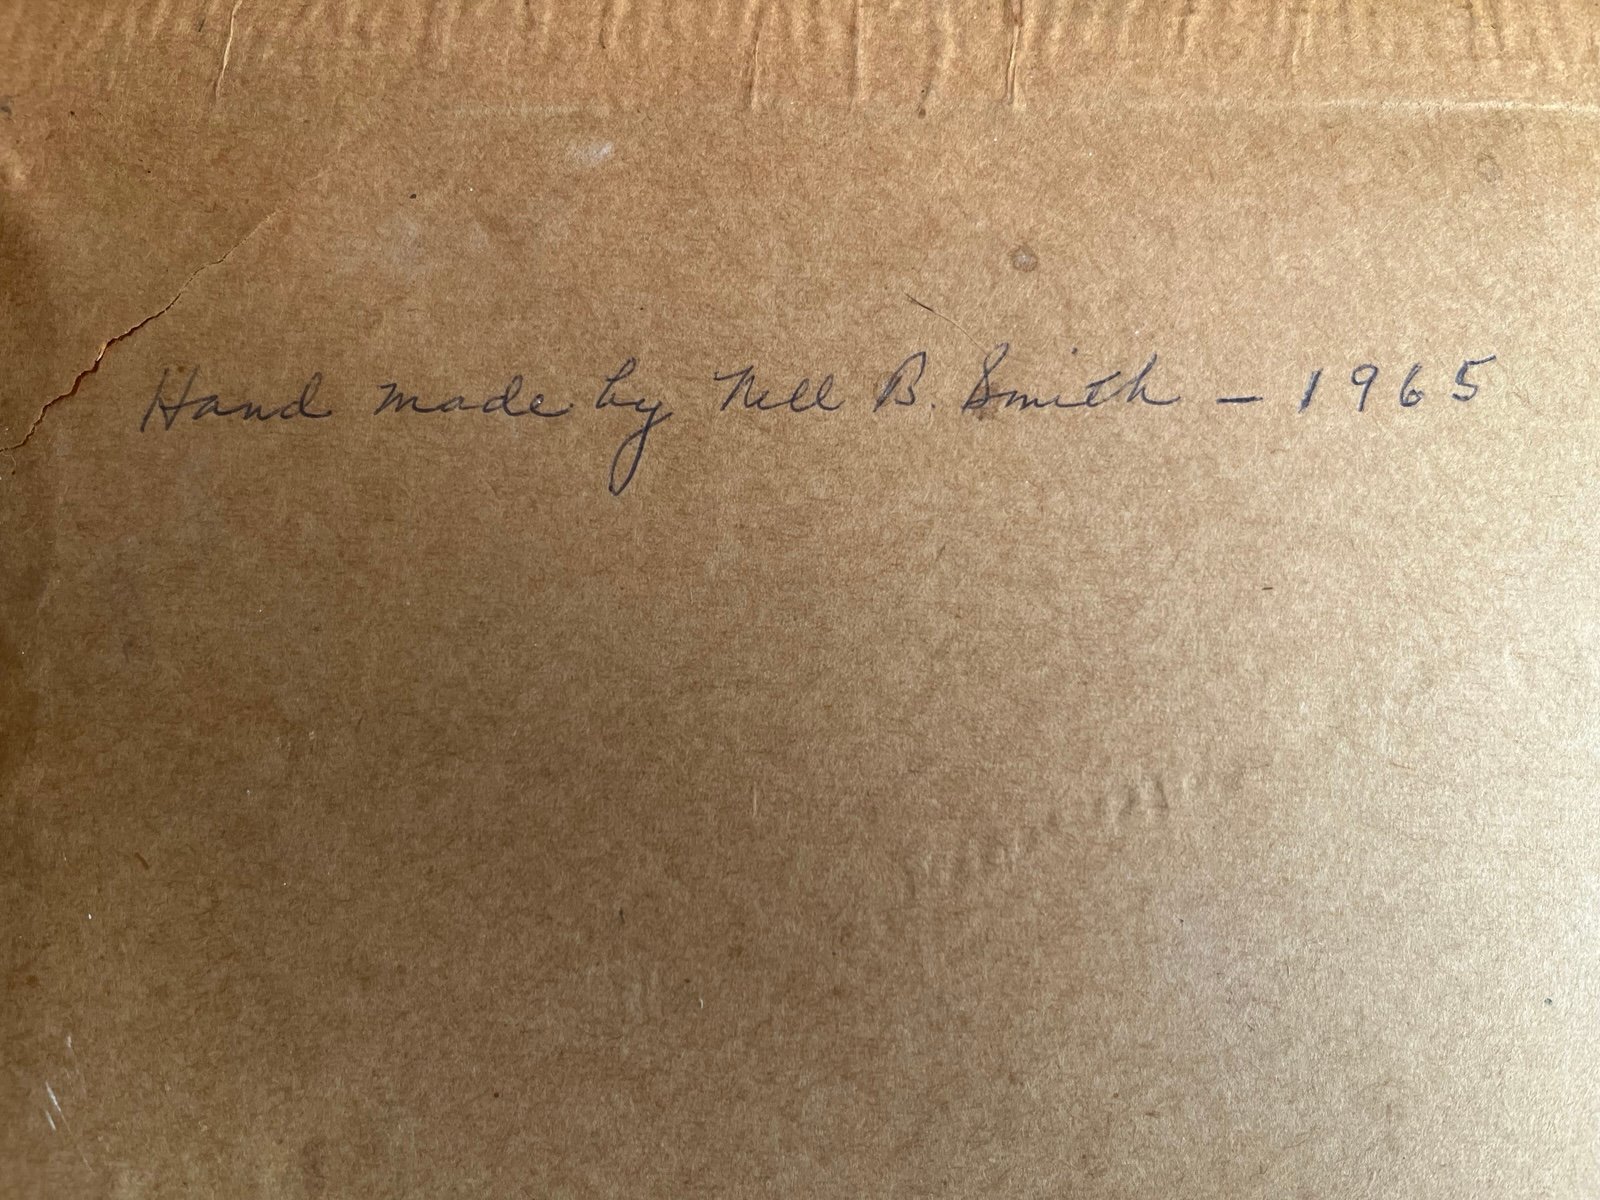 Hand made by Nell B. Smith – 1965